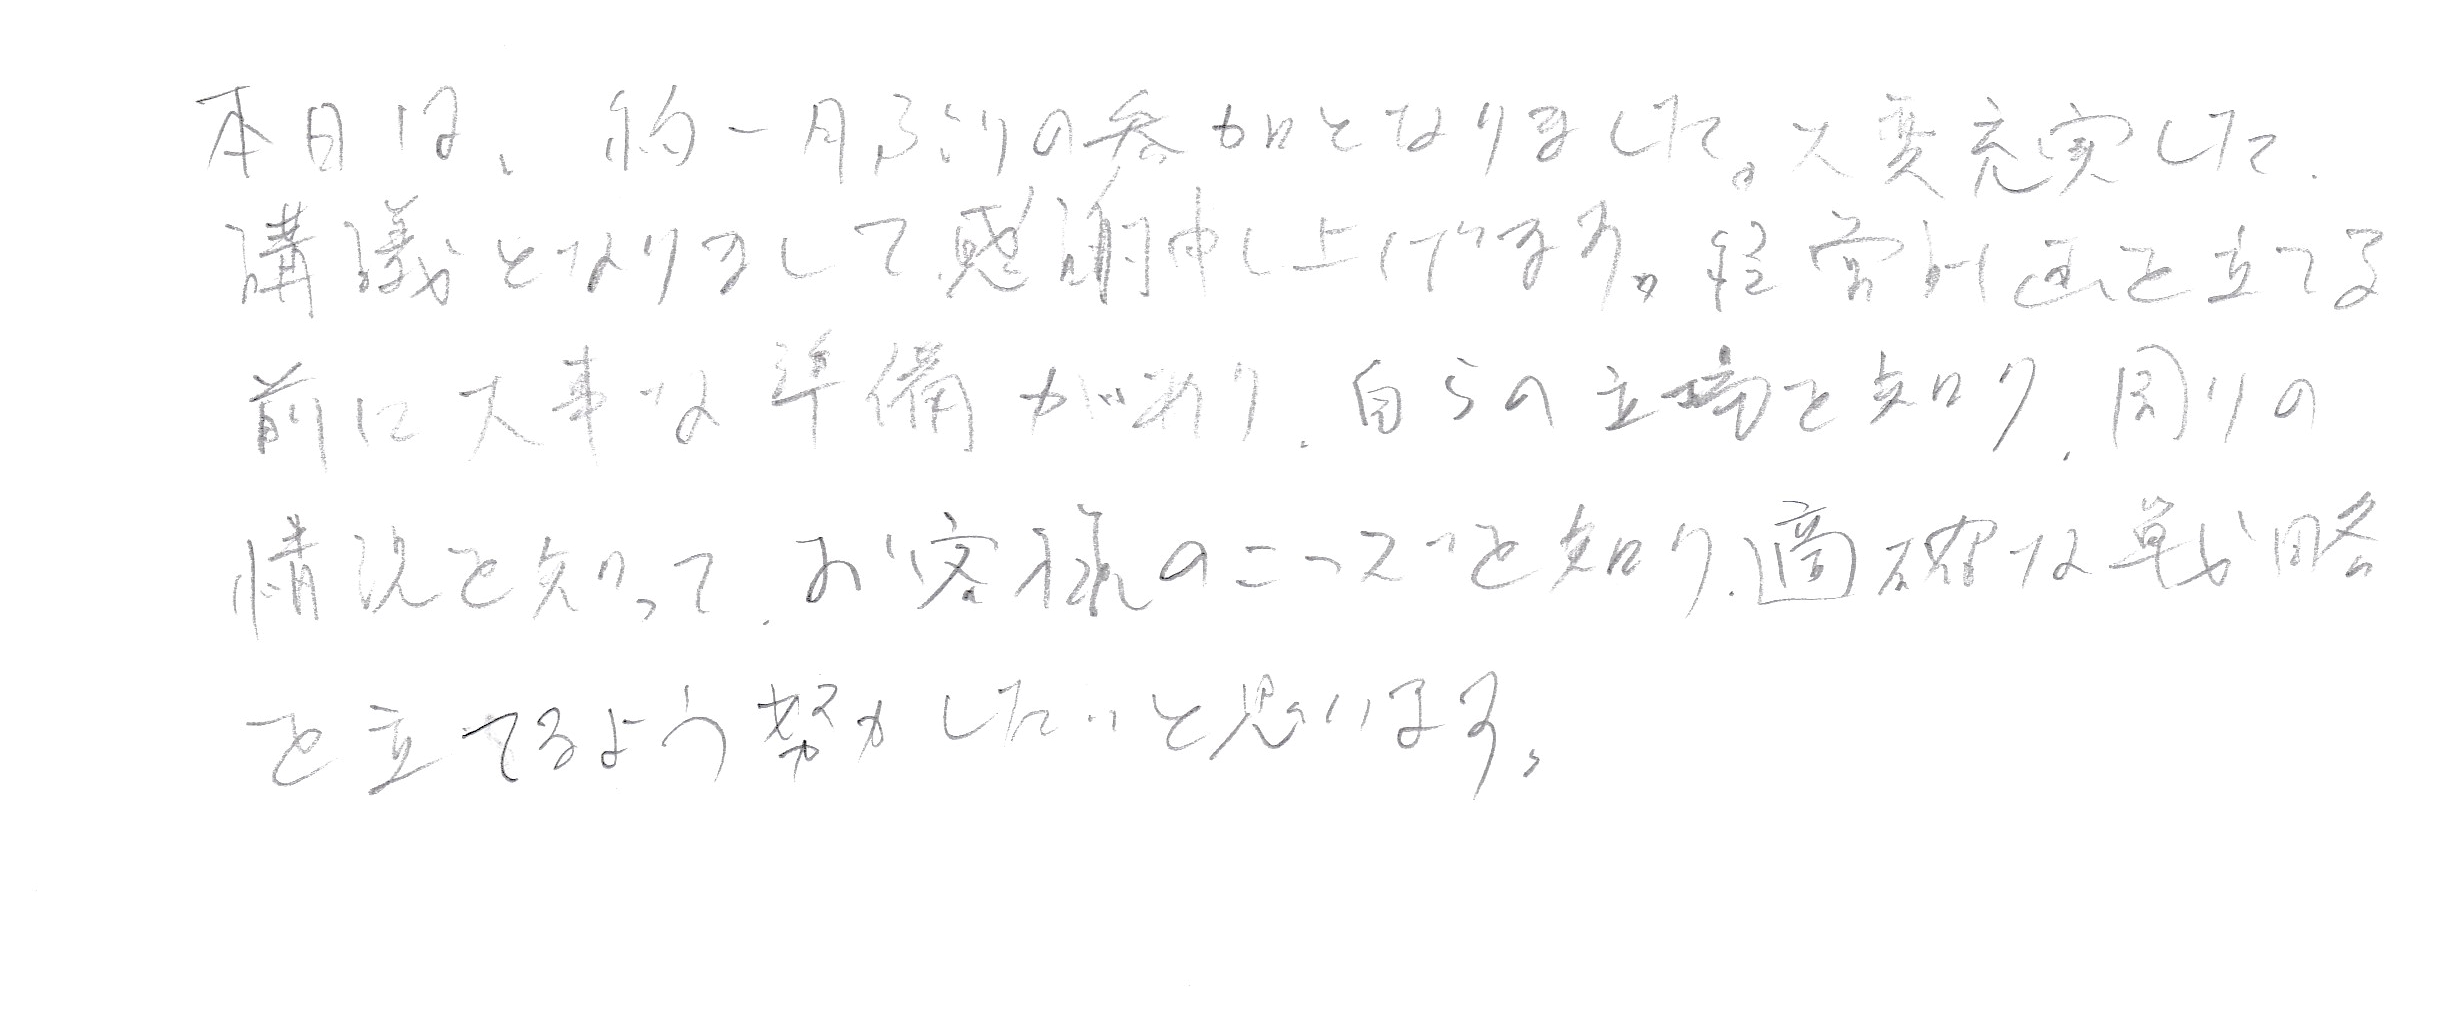 本日は、約一月ぶりの参加となりました。大変充実した
講議となりまして感謝申し上げます。経営計画を立てる
前に大事な準備があり、自らの立場を知り、周りの
情況を知って、お客様のニーズを知り、適確な戦略
を立てるよう努力したいと思います。